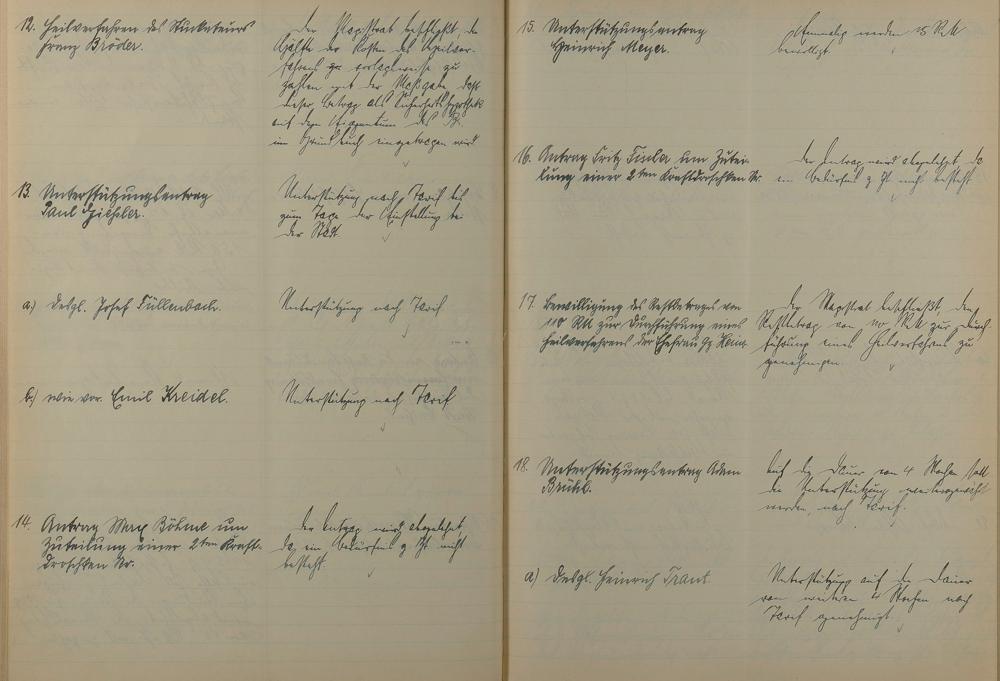 12. Heilverfahren des Stuckateurs
Franz Bröder.
Der Magistrat beschließt, die
Hälfte der Kosten des Heilver-
fahrens vorlageweise zu
zahlen mit der Maßgabe, daß
dieser Betrag als Sicherheitshypothek
auf dem Eigentum des Br.
im Grundbuch eingetragen wird
13. Unterstützungsantrag
Paul
Unterstützung nach Tarif bis
zum Tage der Einstellung bei
der Stadt.
a.) Desgl. Josef Füllenbach.
Unterstützung nach Tarif
b.) wie vor. Emil Kreidel.
Unterstützung nach Tarif
14. Antrag Max Böhme um
Zuteilung einer 2ten Kraft-
droschken Nr.
Der Antrag wird abgelehnt,
da ein Bedürfnis z Zt nicht
besteht.
15. Unterstützungsantrag
Heinrich Meyer.
Einmalig werden 15 RM
bewilligt
16. Antrag Fritz um Zutei-
lung einer 2ten Kraftdroschken Nr.
Der Antrag wird abgelehnt, da
ein Bedürfnis z Zt nicht besteht
17. Bewilligung des Restbetrages von
110 RM zur Durchführung eines
Heilverfahrens der Ehefrau
Der Magistrat beschließt, den
Restbetrag von 110 RM zur Durch-
führung eines Heilverfahrens zu
genehmigen.
18. Unterstützungsantrag Adam
Brühl.
Auf die Dauer von 4 Wochen soll
die Unterstützung weitergewährt
werden, nach Tarif.
a) Desgl. Heinrich Traut
Unterstützung auf die Dauer
von weiteren 4 Wochen nach
Tarif genehmigt.